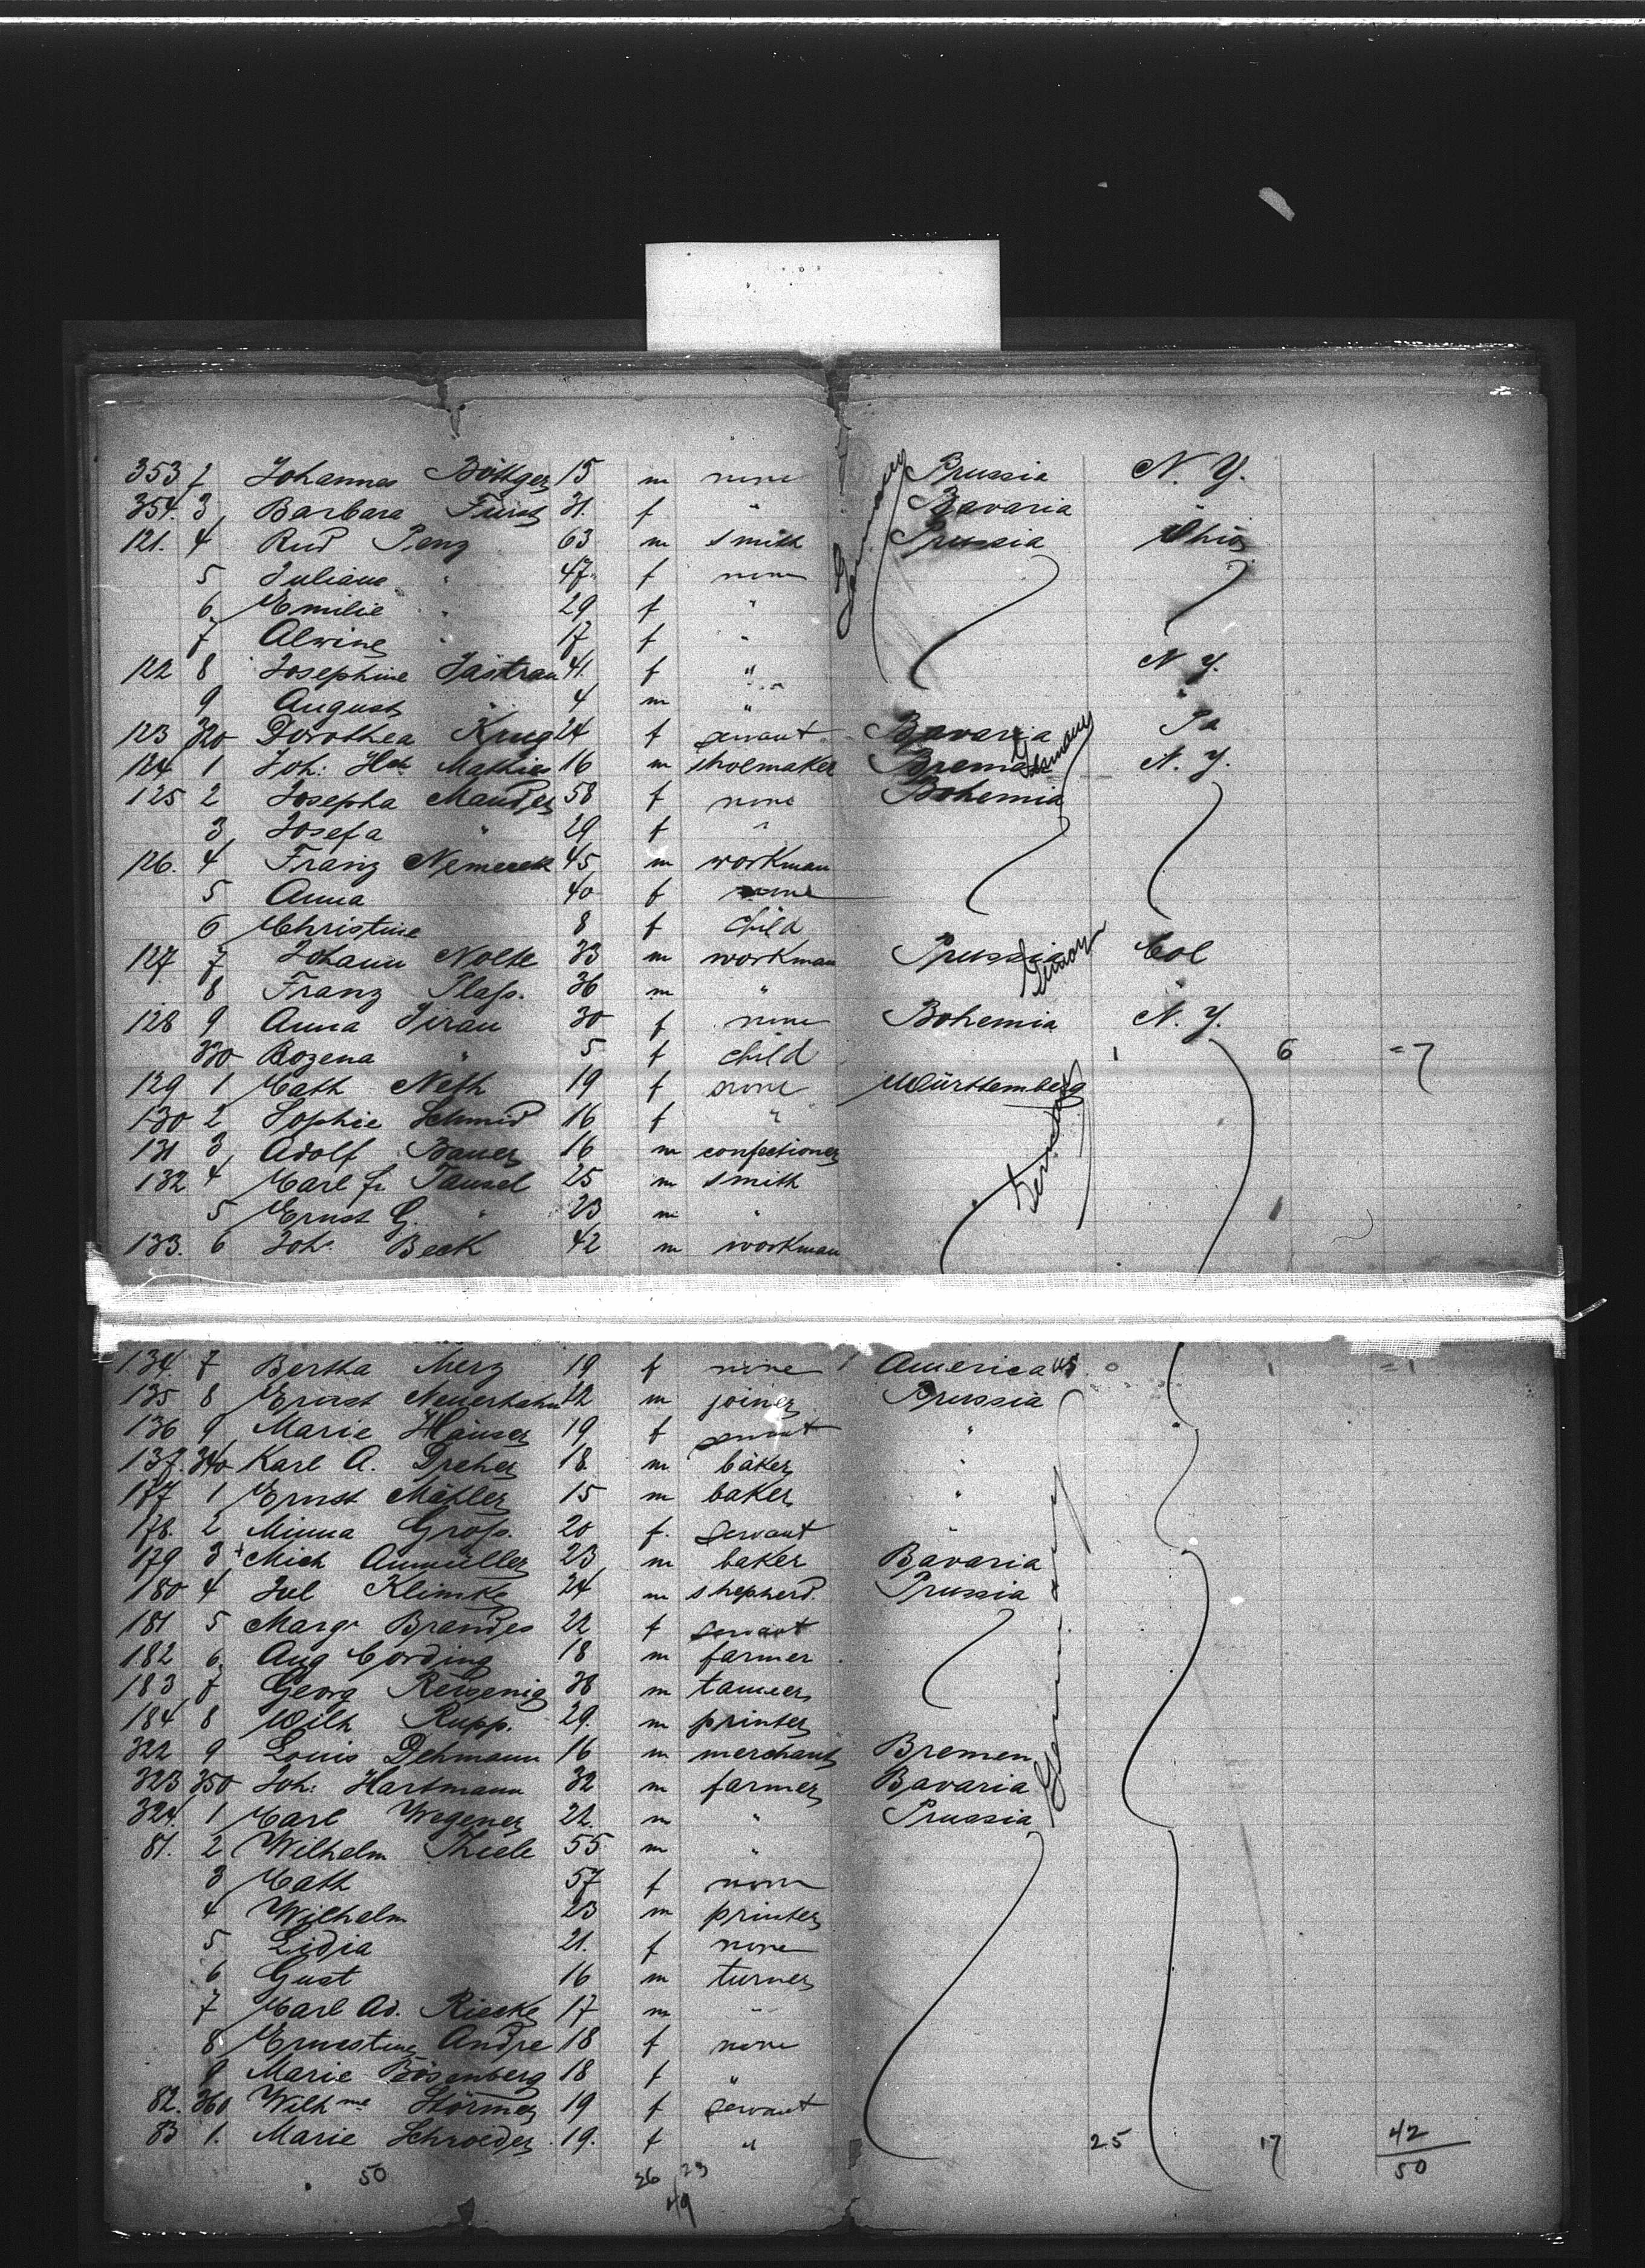 353 2 Johannes Böttger 15 m none Prussia N. Y.
354. 3 Barbara Fürst 31. f " Bavaria "
121. 4 Rud Penz 63 m smith Prussia Ohio
Germany
5 Juliane " 47 f none
6 Emilie " 29 f "
7 Alwine " 17 f "
122 8 Josephine Jastrau 41. f " N. Y.
9 August " 4 m " "
123 320 Dorothea Krug 24 f servant Bavaria Pa
124 1 Joh: Hch Mathies 16 m shoemaker Bremen N. Y.
Germany
125 2 Josepha Mander 58 f none Bohemia
3 Josefa " 29 f "
126. 4 Franz Nemecek 45 m workman
5 Anna 40 f none
6 Christine 8 f child
127 7 Johann Nolte 33 m workman Prussia Col
8 Franz Plass. 36 m " "
128 9 Anna Jirau 30 f none Bohemia N. Y.
330 Rozena " 5 f child 1 6 =7
129 1 Cath Neth 19 f none Württemberg
130 2 Sophie Schmid 16 f "
131 3 Adolf Bauer 16 m confectioner
132 4 Carl fr Tausel 25 m smith
Germany
5 Ernst G. " 23 m "
133. 6 Joh. Beck 42 m workman
134. 7 Bertha Merz 19 f none 1 America US 0 1 =1
135 8 Ernst Neuerhahn 22 m joiner Prussia
136 9 Marie Häuser 19 f servant "
137. 340 Karl A. Dreher 18 m baker "
177 1 Ernst Mähler 15 m baker "
178. 2 Minna Gross. 20 f. servant "
179 3 Mich Aumüller 23 m baker Bavaria
180 4 Jul Klimke 24 m shepherd. Prussia
181 5 Margr Brandes 22 f servant
182 6. Aug Cording 18 m farmer
183 7 Georg 38 m tanner
184 8 Wilh Rupp. 29. m printer
Germany
322 9 Louis Dehmann 16 m merchant Bremen
323 350 Joh: Hartmann 32 m farmer Bavaria
324. 1 Carl Wegener 22. m " Prussia
81. 2 Wilhelm Thiele 55 m "
3 Cath 57 f none
4 Wilhelm 23 m printer
5 Lidia 21. f none
6 Gust 16 m turner
7 Carl Ad. Riecke 17 m "
8 Ernestine Andre 18 f none
9 Marie Bösenberg 18 f "
82. 360 Wilhme Störmer 19 f servant
83 1. Marie Schroeder. 19. f " 25 17 42
50 26 23 50
49